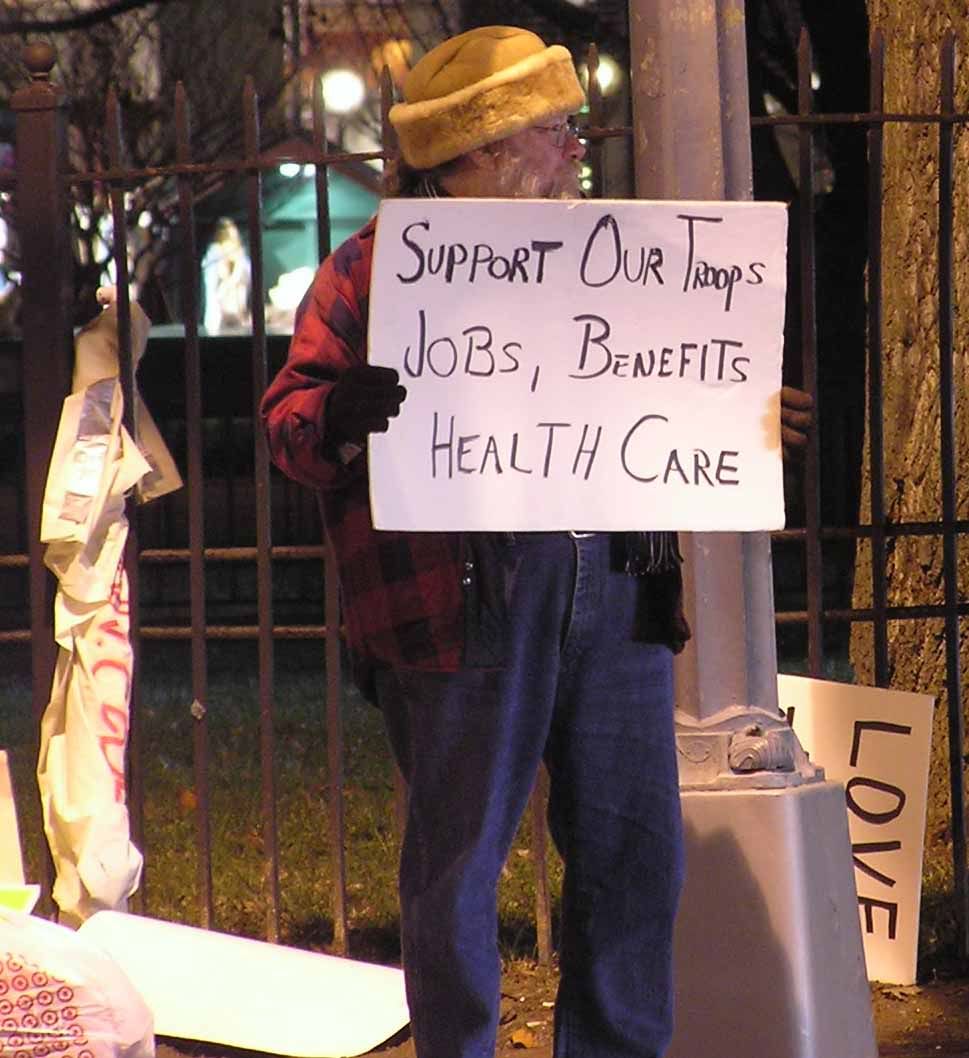 SUPPORT OUR TROOPS
JOBS, BENEFITS
HEALTH CARE
LOVE